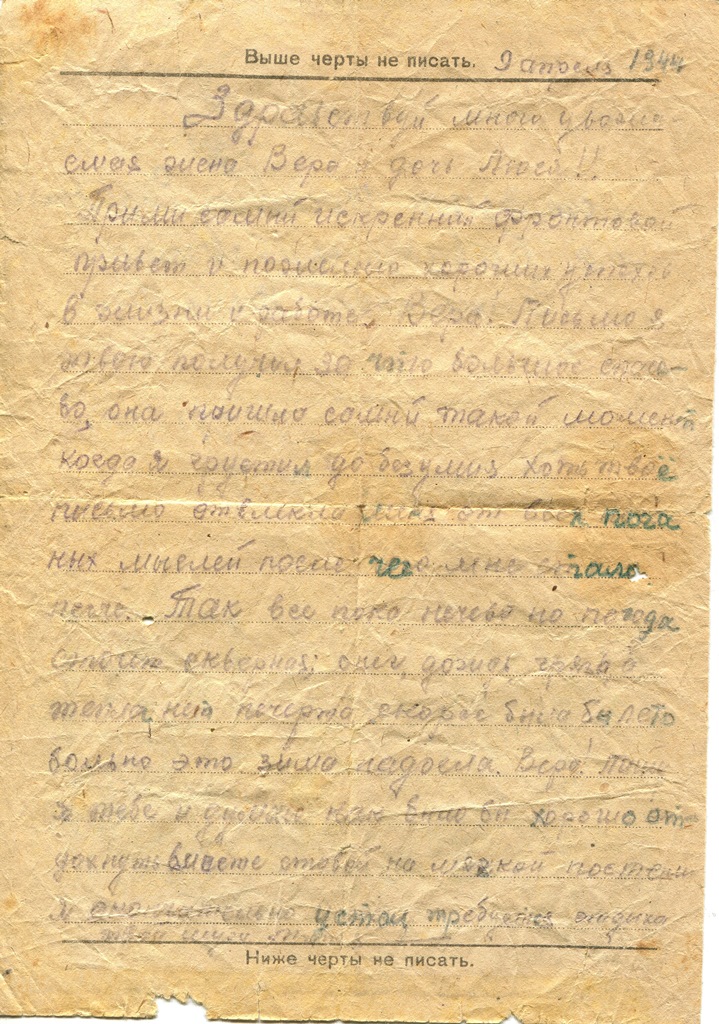 Выше черты не писать. 9 апреля 1944
Здравствуй много уважа
емая жена Вера и дочь Люся!!
Прими самый искренний фронтовой
привет и пожелание хороших успехов
в жизни и работе. Вера! Письмо я
твоё получил за что большое спаси-
бо, она пришло самый такой момент
когда я грустил до безумия хоть твоё
письмо отвлекло меня от всех пога
ных мыслей после чего мне стало
легче. Так все пока нечево но погода
стоит скверная; снег, дождь грязь а
тепла нет ни черта скорее было бы лето
больно это зима надоела. Вера!
я тебе и думаю как было бы хорошо от-
дохнуть вместе стобой на мягкой постели
Я устал требуется отдыха
Ниже черты не писать.